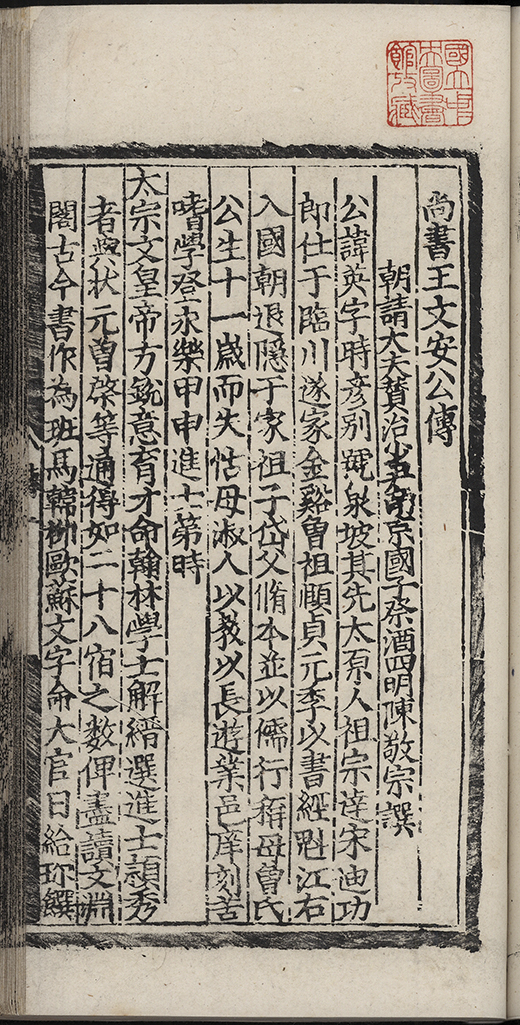 國立中央圖書館收藏
尚書王文安公傳
朝請大夫贊治少尹南京國子祭酒四明陳敬宗譔
公諱英字時彥別號泉坡其先太原人祖宗達宋迪功
郎仕于臨川遂家金谿曾祖順貞元季以書經魁江右
入國朝退隱于家祖子岱父脩本並以儒行稱母曾氏
公生十一歲而失怙母淑人以教以長遊業邑庠刻苦
嗜學登永樂甲申進士第時
太宗文皇帝方銳意育才命翰林學士解縉選進士穎秀
者與狀元曾棨等通得如二十八宿之數俾盡讀文淵
閣古今書作為班馬韓柳歐蘇文字命大官日給珎饌